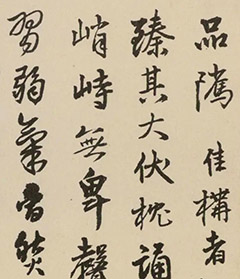 品隲佳構者
臻其大伏枕誦
峭峙無卑
習弱氣然